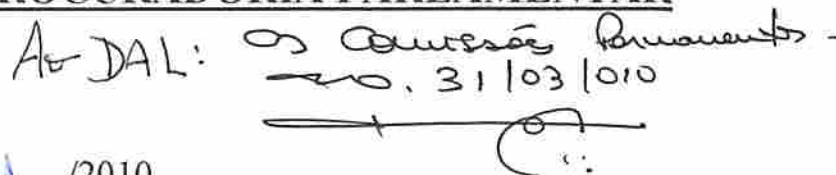 PROCURADORIA PARLAMENTAR
Ao DAL: Os Comissões Permanentes -
31/03/010
/2010